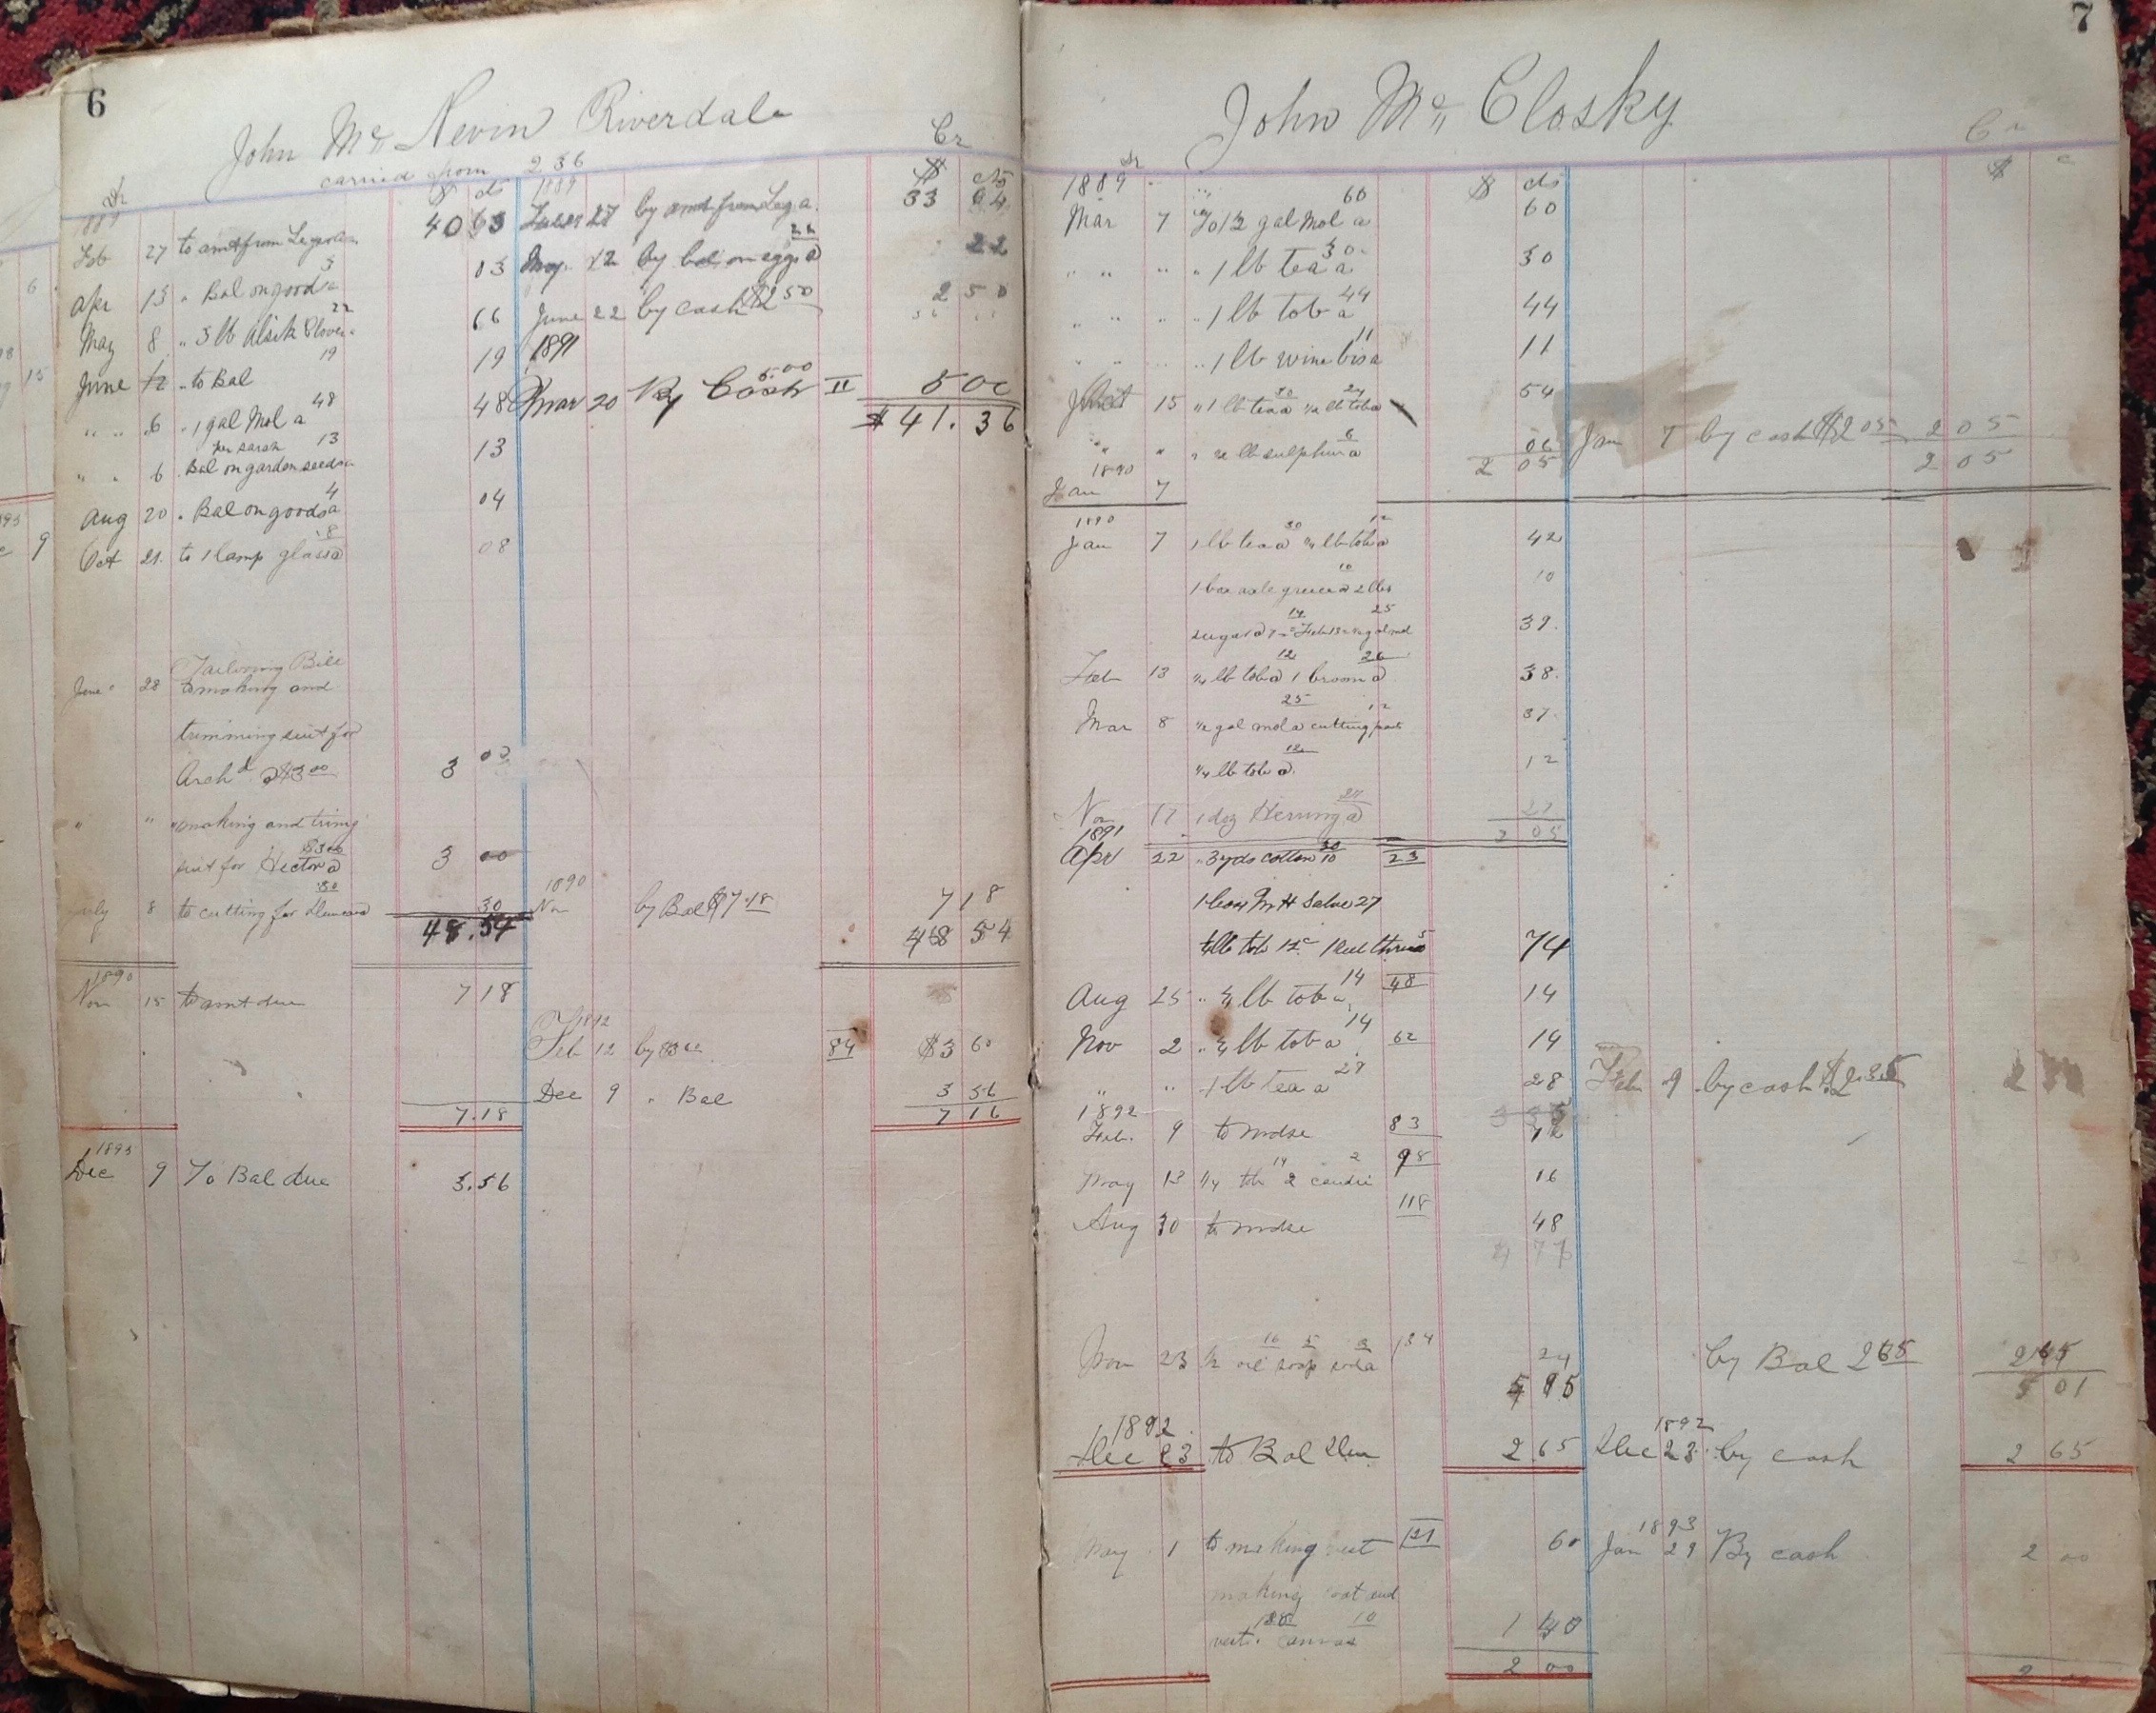 6
John Mc Nevin Riverdale
carried from 236
Dr Cr
$ cts 1889 $ cts
Feb 27 to amt from Leger 40 63
by amt from Leg a 33 64
Apr 13 " Bal on goods a 3 03
May 12 by bal on eggs a 22 22
May 8 " 3 lb Alsik Clover a 22 66
June 22 by cash $2 50 2 50
June 12 " to Bal 19 19
1891
" " 6 " 1 gal Mol a 48 48
Mar 20 By Cash 5.00 11 5 00
$41.36
per sarah
" " 6 " Bal on garden seeds a 13 13
Aug 20 " Bal on goods a 4 04
Oct 21 to 1 lamp glass a 8 08
Tailoring Bill
June 28 to making and
trimming suit for
Arch d a $3 00 3 00
" " " making and trimg
suit for Hector a $3 00 3 00
July 8 to cutting for Duncan a 30 30
1890
Nov by Bal $7.18 7 18
48.54 48 54
1890
Nov 15 to amt due 7 18
1892
Feb 12 by 84 $3 60
Dec 9 " Bal 3 56
7.18 7 16
1893
Dec 9 To Bal due 3.56
7
John Mc Closky
Dr Cr
1889 $ cts $ c
Mar 7 To 1/2 gal Mol a 60 60
" " " " 1 lb tea a 30 30
" " " " 1 lb tob a 44 44
" " " " 1 lb wine bis a 11 11
15 " 1 lb tea a 30 1/2 lb tob a 24 54
" " " 1/2 lb sulphur a 6 06
Jan 7 by cash $2 05 2 05
1890
Jan 7 2 05 2 05
1890
Jan 7 1 lb tea a 30 1/4 lb tob a 12 42
1 box axle grease a 10 2 lbs 10
sugar a 7 14 Feb 13 1/2 gal mol 25 39
Feb 13 1/4 lb tob a 12 1 broom a 26 38
Mar 8 1/2 gal mol a 25 cutting pants 12 37
1/4 lb tob a 12 12
Nov 17 1 doz Herring a 27 27
2 05
1891
Apr 22 " 3 yds cotton 10 30 23
1 box Salve 27
lb tob 12c 1 reel thread 5 74
Aug 25 " 1/4 lb tob a 14 48 14
Nov 2 " 1/4 lb tob a 14 62 14
" " 1 lb tea a 28 28
Feb 9 by cash $2.35
1892
Feb. 9 to mdse 83 12
May 13 1/4 tob 14 2 candie 2 98 16
Aug 30 to mdse 118 48
4 77
Nov 23 1/2 oil 16 soap 5 soda 3 134 24
by Bal 2 65 2 65
4 95 5 01
1892
Dec 23 to Bal Due 2.65
1892
Dec 23 by cash 2 65
May 1 to making vest 121 60
1893
Jan 29 By cash 2 00
making coat and
vest 130 canvas 10 1 40
2 00 2 00